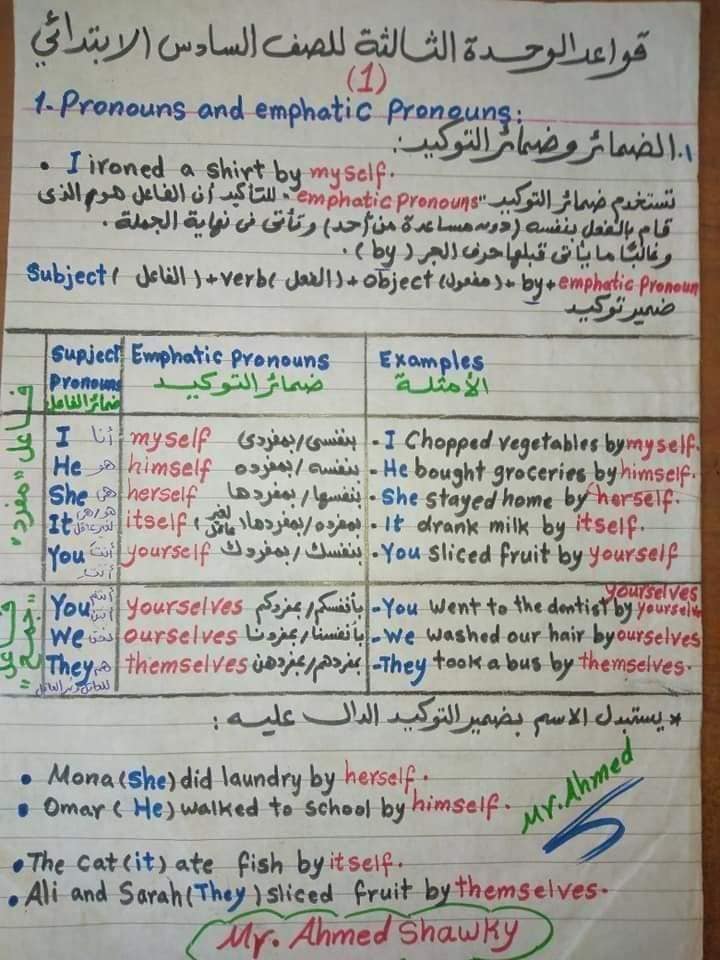 قواعد الوحدة الثالثة للصف السادس الابتدائي
(1)
1- Pronouns and emphatic Pronouns:
١. الضمائر وضمائر التوكيد:
• I ironed a shirt by myself.
تستخدم ضمائر التوكيد "emphatic Pronouns" للتأكيد أن الفاعل هو من الذى
قام بالفعل بنفسه (دون مساعدة من أحد) وتأتى فى نهاية الجملة.
وغالبًا ما يأتى قبلها حرف الجر (by).
Subject (الفاعل) + verb (الفعل) + object (مفعول) + by + emphatic Pronoun
ضمير توكيد
Supject Pronouns ضمائر الفاعل | Emphatic Pronouns ضمائر التوكيد | Examples الأمثلة
فاعل "مفرد"
I أنا | myself بنفسى/بمفردى | - I Chopped vegetables by myself.
He هو | himself بنفسه/بمفرده | - He bought groceries by himself.
She هى | herself بنفسها/بمفردها | - She stayed home by herself.
It هو/هى لغير عاقل | itself بمفرده/بمفردها (لغير عاقل) | - It drank milk by itself.
You أنتَ أنتِ | yourself بنفسك/بمفردك | - You sliced fruit by yourself
فاعل "جمع"
You أنتم | yourselves بأنفسكم/بمفردكم | - You went to the dentist by yourselves yourselves
We نحن | ourselves بأنفسنا/بمفردنا | - We washed our hair by ourselves
They هم | themselves بمفردهم/بمفردهن | - They took a bus by themselves.
* يستبدل الاسم بضمير التوكيد الدال عليه:
• Mona (She) did laundry by herself.
• Omar (He) walked to school by himself.
Mr. Ahmed
• The cat (it) ate fish by itself.
• Ali and Sarah (They) sliced fruit by themselves.
Mr. Ahmed Shawky